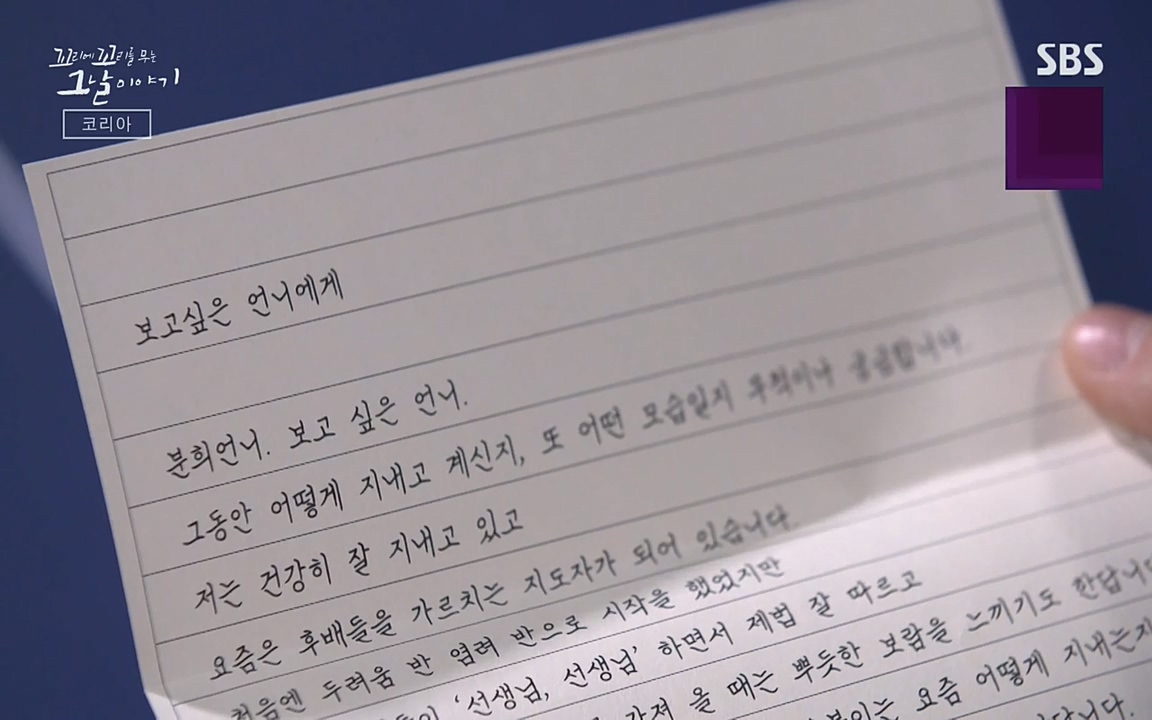 꼬리에 꼬리를 무는
그날 이야기
코리아
SBS
보고싶은 언니에게
분희언니. 보고 싶은 언니.
그동안 어떻게 지내고 계신지, 또 어떤 모습일지 무척이나 궁금합니다.
저는 건강히 잘 지내고 있고
요즘은 후배들을 가르치는 지도자가 되어 있습니다.
처음엔 두려움 반 염려 반으로 시작을 했었지만
'선생님, 선생님' 하면서 제법 잘 따르고
가져 올 때는 뿌듯한 보람을 느끼기도 한답니다
요즘 어떻게 지내는지